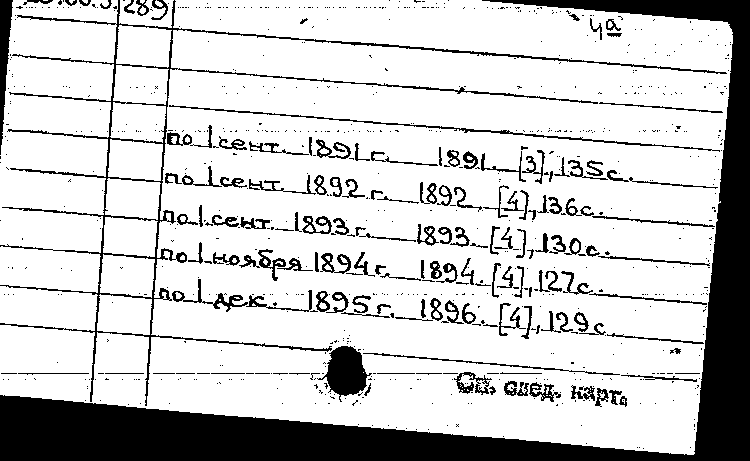 289
4а
по 1 сент. 1891 г. 1891. [3], 135 с.
по 1 сент. 1892 г. 1892. [4], 136 с.
по 1 сент. 1893 г. 1893. [4], 130 с.
по 1 ноября 1894 г. 1894. [4], 127 с.
по 1 дек. 1895 г. 1896. [4], 129 с.
См. след. карт.